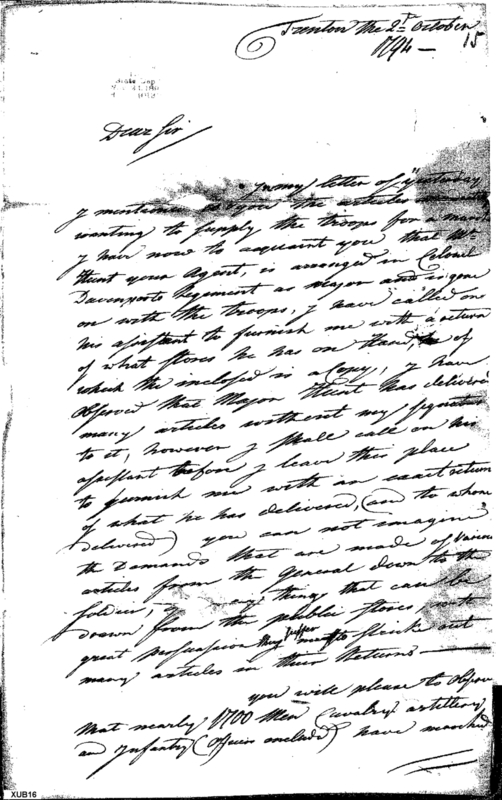 Trenton the 2d October
1794 —
15
Dear Sir
In my letter of yesterday
I mentioned to you the articles
wanting to supply the troops for a march
I have now to acquaint you that Mr.
Hunt your Agent, is arranged in Colonel
Davenports Regiment as Major and is gone
on with the troops, I have called on
his assistant to furnish me with a return
of what stores he has on Hand, of
which the inclosed is a Copy, I have
observed that Major Hunt has delivered
many articles without my signature
to it, however I shall call on his
assistant before I leave this place
to furnish me with an exact return
of what he has delivered, (and to whom
Delivered) you can not imagine
the Demands that are made of various
articles from the General down to the
soldier, for any thing that can be
Drawn from the publick stores, with
great perswasion they suffer me to strike out
many articles in their Returns —
you will please to observe
that nearly 1700 Men Cavalry artillery
and Infantry (officers included) have marched
XUB16